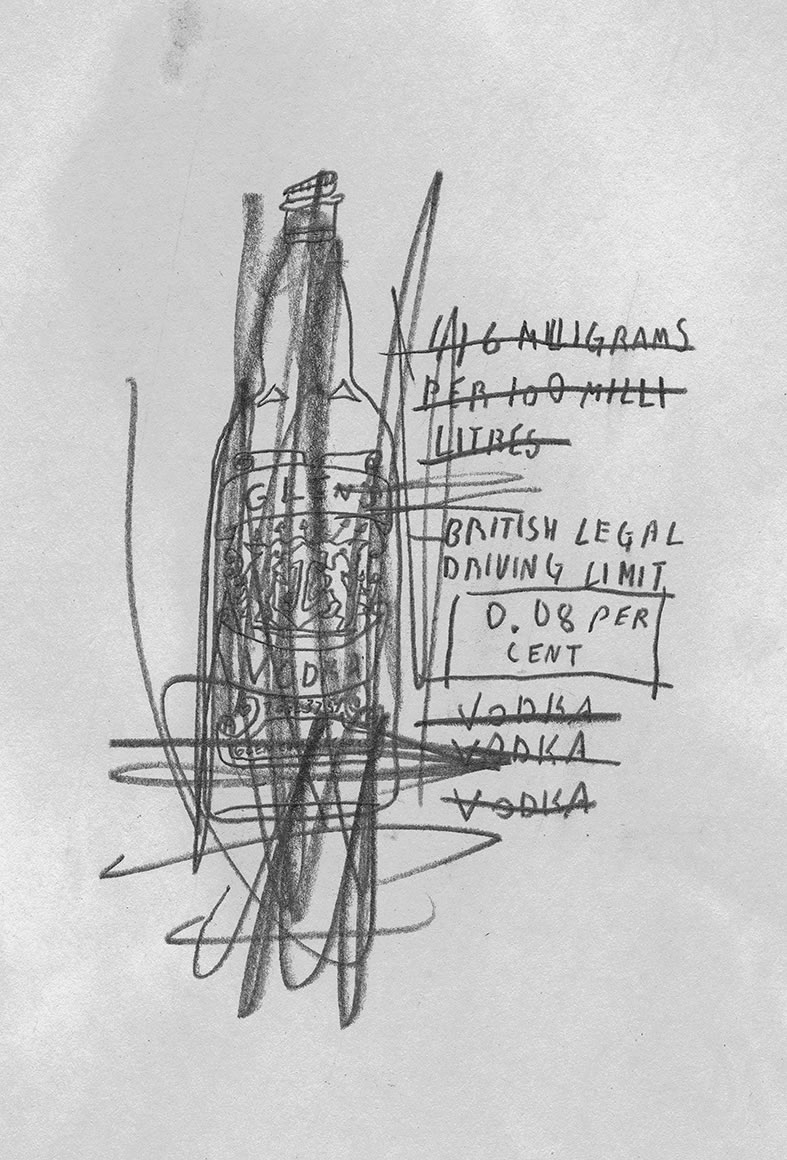 GLEN'S
VODKA
116 MILLIGRAMS
PER 100 MILLI
LITRES
BRITISH LEGAL
DRIVING LIMIT
0.08 PER
CENT
VODKA
VODKA
VODKA